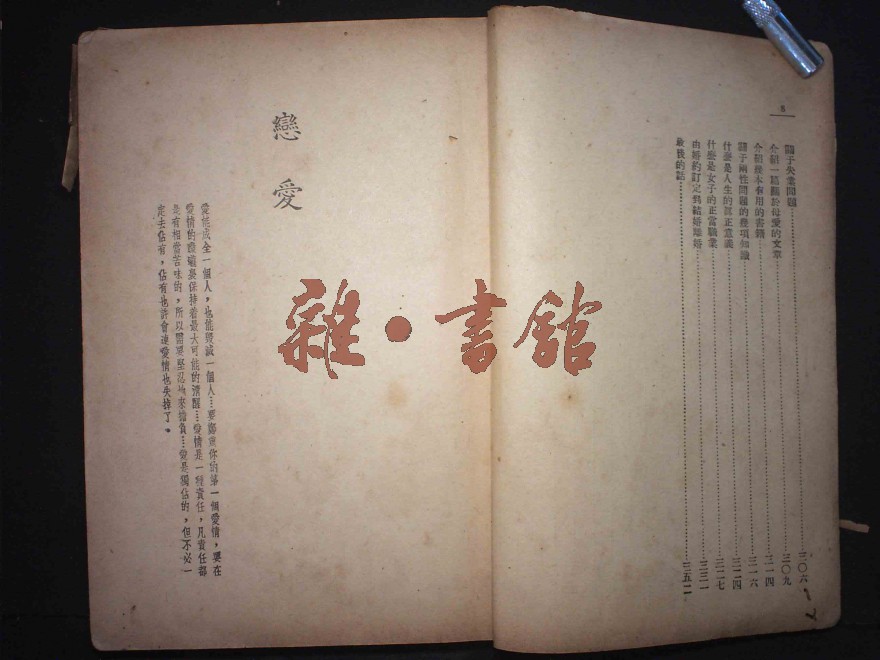 8
關于失業問題……三〇六
介紹一篇關於母愛的文章……三〇九
介紹幾本有用的書籍……三一四
關于兩性問題的幾項知識……三一六
什麼是人生的眞正意義……三二四
什麼是女子的正當職業……三二七
由婚約訂定到結婚離婚
最後的話……三五二
戀愛
愛能成全一個人，也能毀滅一個人…要鄭重你的第一個愛情，要在
愛情的
保持着最大可能的清醒…愛情是一種責任，凡責任都
是有相當苦味的，所以需要堅忍地來擔負…愛是獨佔的，但不必一
定去佔有，佔有也許會連愛情也失掉了。
雜·書館